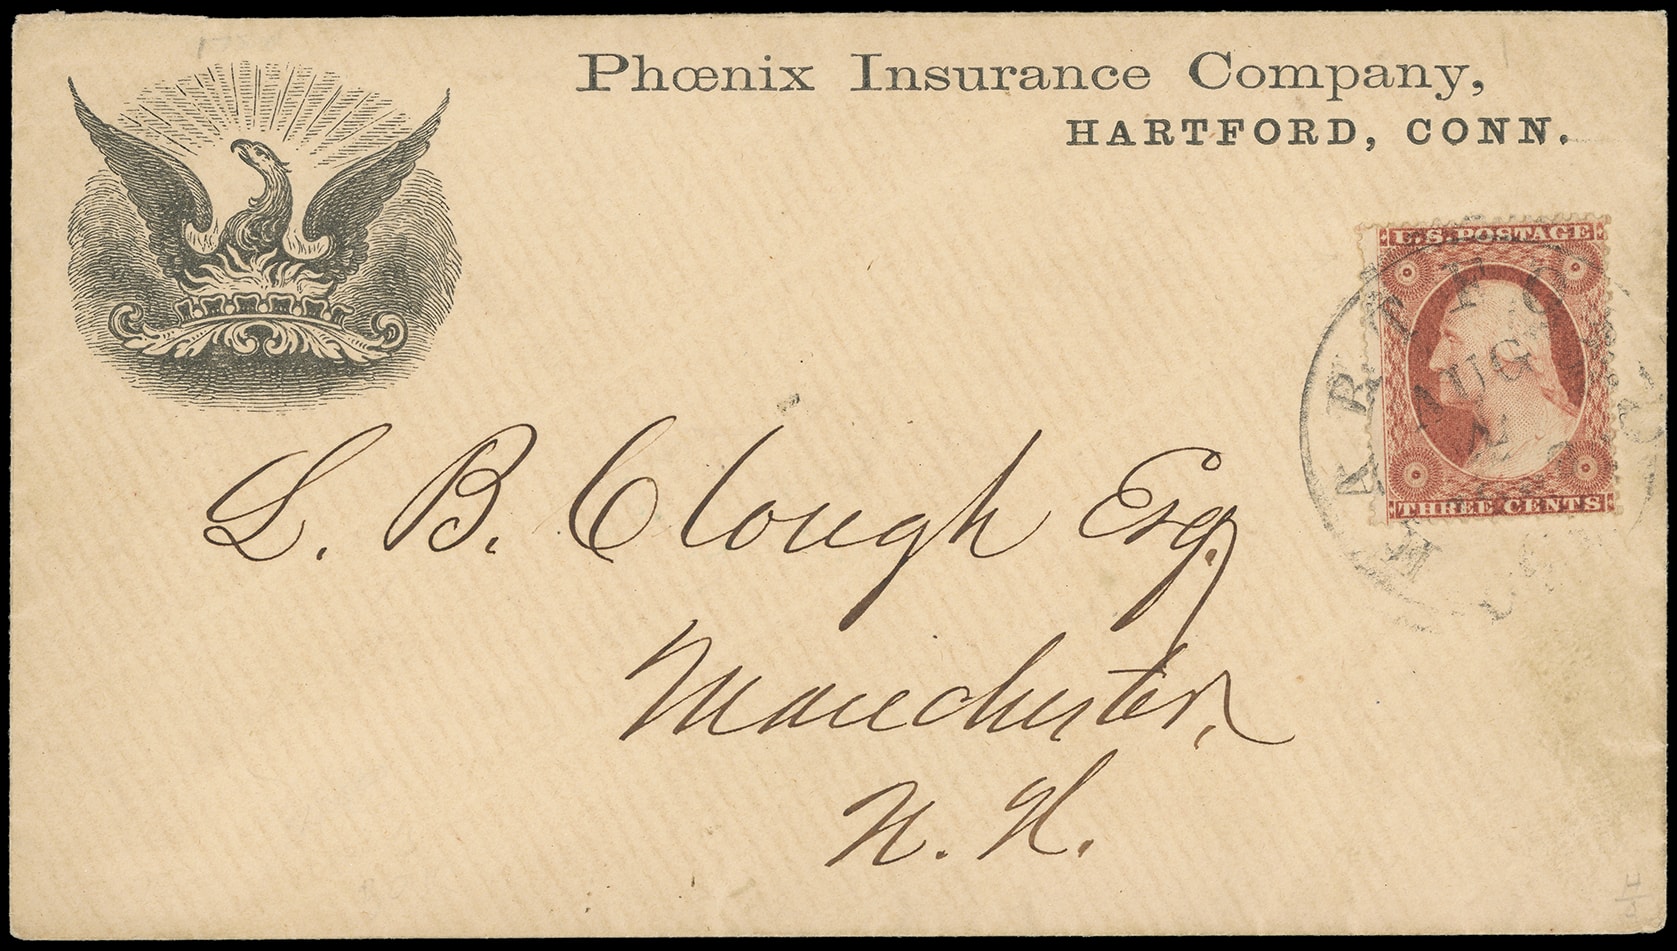 Phœnix Insurance Company,
HARTFORD, CONN.
U.S. POSTAGE
HARTFORD
AUG
THREE CENTS
L. B. Clough Esq.
Manchester,
N. H.